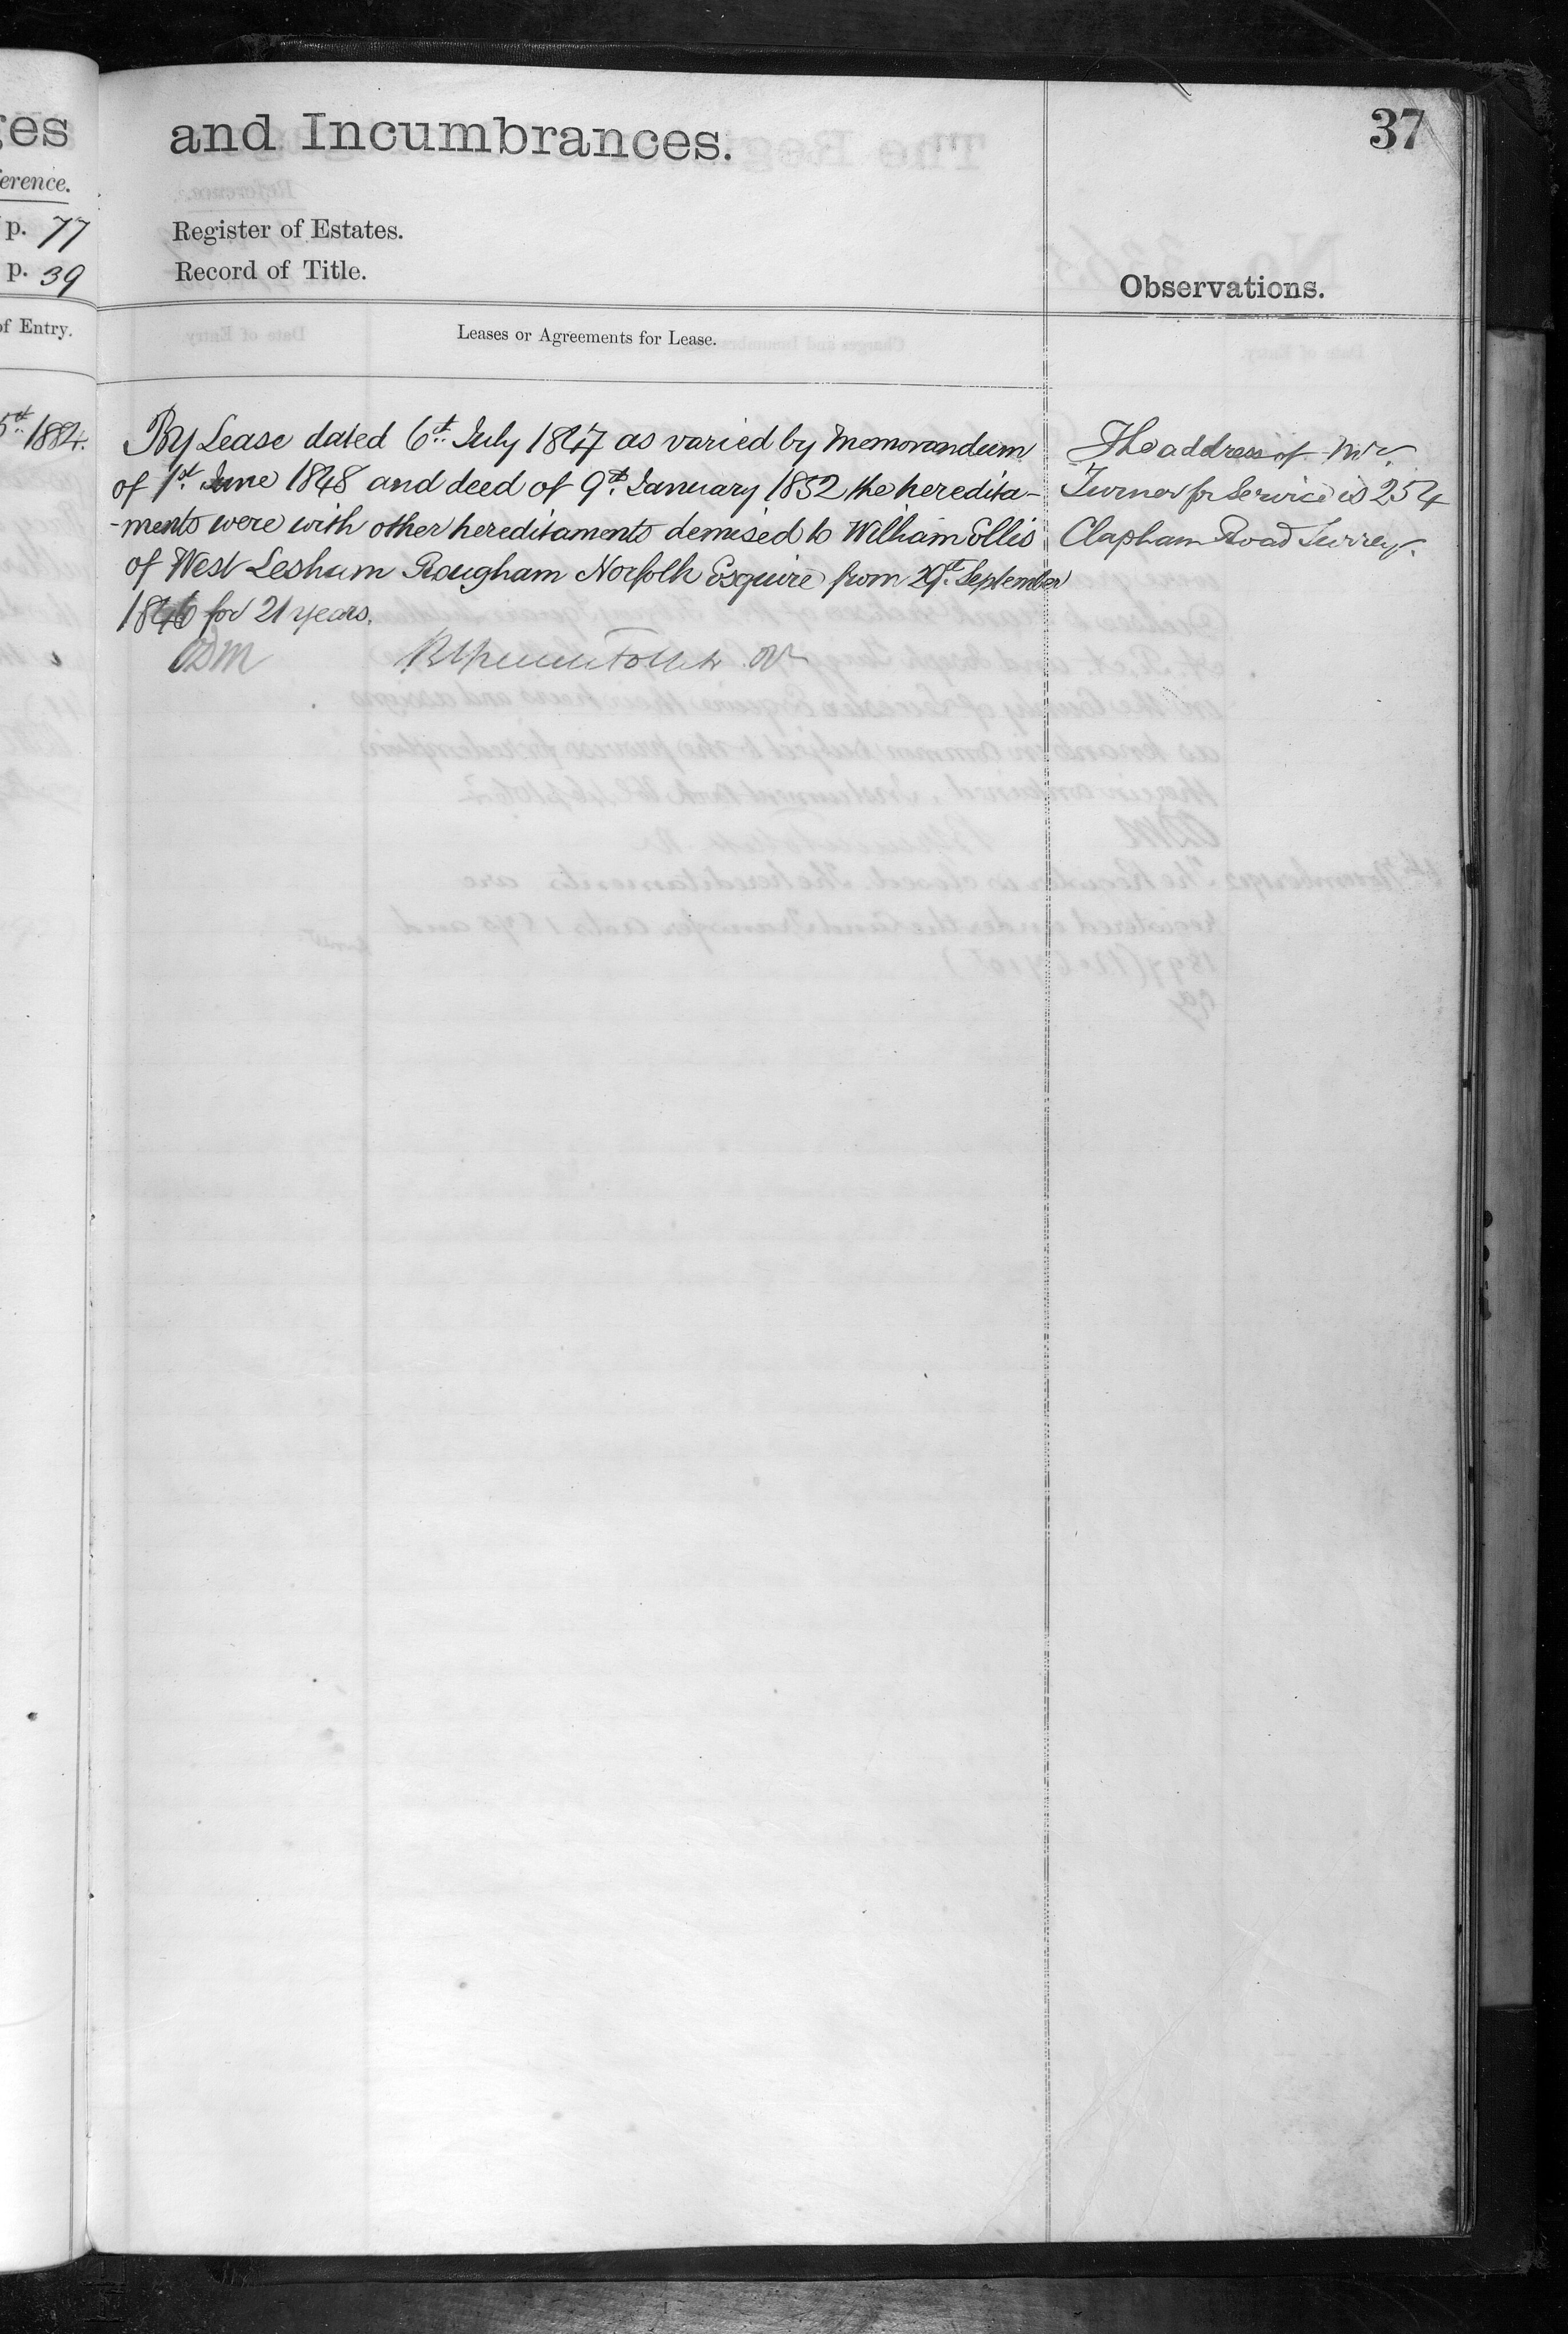 ges
and Incumbrances.
37
erence.
p. 77
Register of Estates.
p. 39
Record of Title.
Observations.
of Entry.
Leases or Agreements for Lease.
5th 1884.
By Lease dated 6th July 1847 as varied by Memorandum
of 1st June 1848 and deed of 9th January 1852 the heredita-
-ments were with other hereditaments demised to William Ellis
of West Leshum Rougham Norfolk Esquire from 29th September
1846 for 21 years.
The address of Mr
Turner for Service is 254
Clapham Road Surrey.